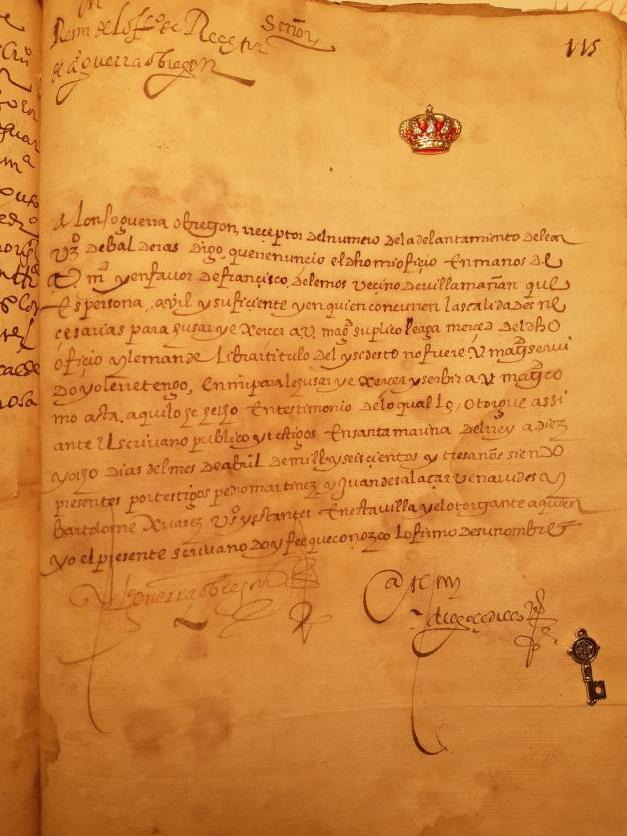 Señor
Renun de lofiº de Receptor
de aº guerra obregon
115
Alonso guerra obregon, rreceptor del numero del adelantamiento de leon
vzº de balderas digo, que rrenuncio el dho mi oficio En manos de
V. mᵗ y en favor de francisco, de lemos vecino de villamañan que
Es persona, avil y suficiente y en quien concurren las calidades ne
cesarias para husar y e Xercer a V. magᵈ suplico le aga merced del dhO
oficio y le mande librar titulo del y si desto no fuere V. magᵈ servi
do yo le rretengo, En mi para le husar y e Xercer y servir a V magᵈ co
mo asta, aqui lo he hecho En testimonio de lo qual lo, otorgue assi
ante El scrivano publico y testigos En santa marina del rrey a diez
y ocho dias del mes de abril de mill y seiscientos y tres años siendO
presentes por testigos pedro martinez y Juan de salaçar venavides y
bartolome Xuarez vºs y estantes En esta villa y el otorgante a quien
yo el presente scrivano doy fee que conozco lo firmo de su nombre
guerra obregon
ante my
diego